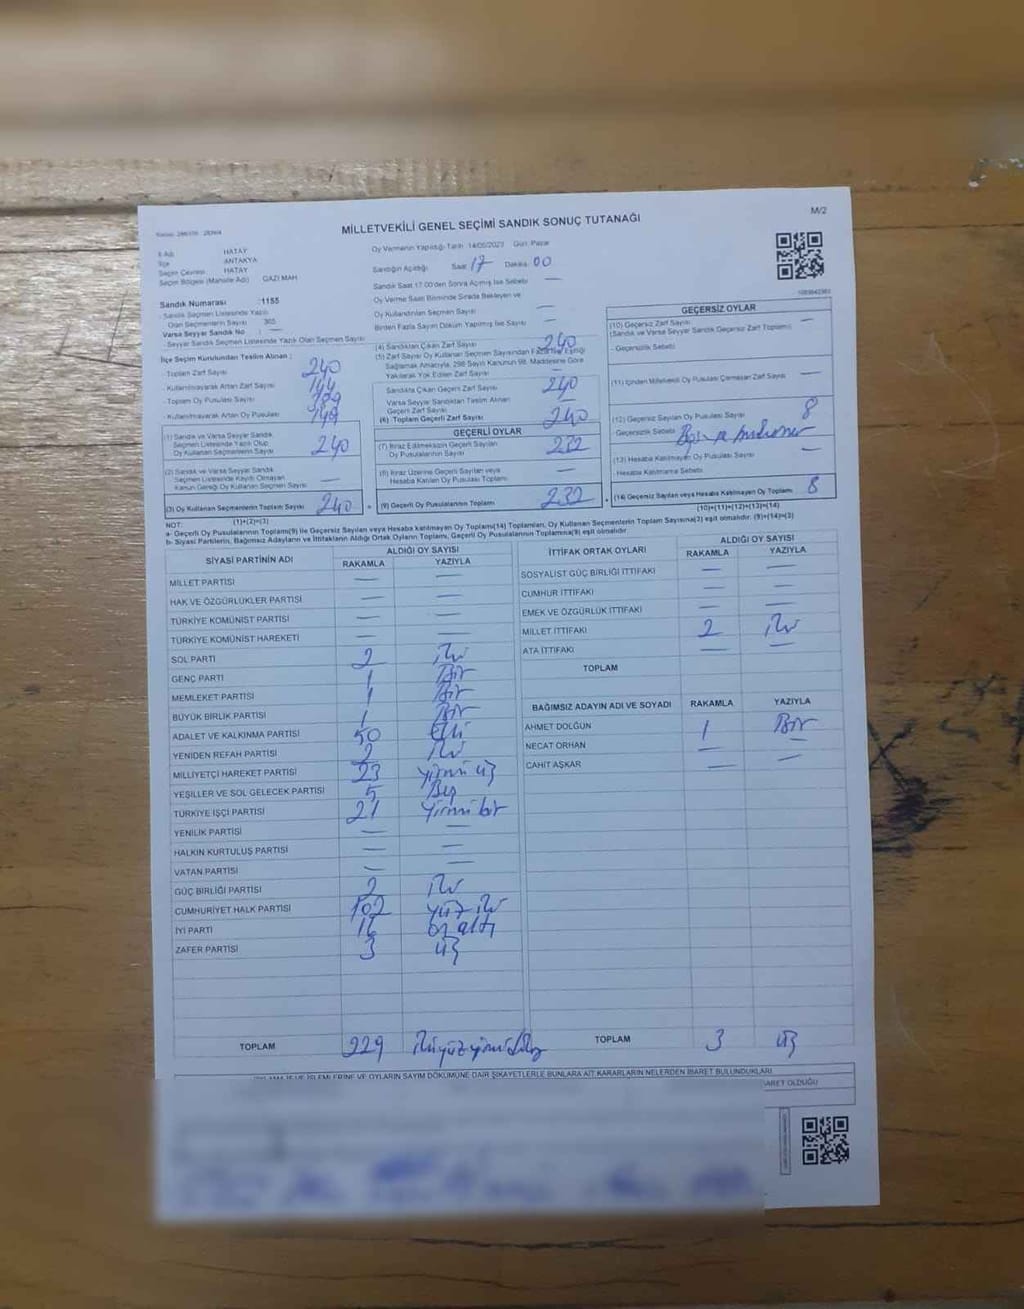 MİLLETVEKİLİ GENEL SEÇİMİ SANDIK SONUÇ TUTANAĞI
M/2
İl Adı HATAY
İlçe ANTAKYA
Seçim Çevresi HATAY
Seçim Bölgesi (Mahalle Adı) GAZİ MAH
Oy Vermenin Yapıldığı Tarih 14/05/2023 Gün: Pazar
Sandığın Açıldığı Saat 17 Dakika 00
Sandık Saat 17.00'den Sonra Açılmış İse Sebebi —
Oy Verme Saati Bitiminde Sırada Bekleyen ve
Oy Kullandırılan Seçmen Sayısı —
Birden Fazla Sayım Döküm Yapılmış İse Sayısı —
Sandık Numarası : 1155
Sandık Seçmen Listesinde Yazılı
Olan Seçmenlerin Sayısı 365
Varsa Seyyar Sandık No —
Seyyar Sandık Seçmen Listesinde Yazılı Olan Seçmen Sayısı
İlçe Seçim Kurulundan Teslim Alınan :
- Toplam Zarf Sayısı
- Kullanılmayarak Artan Zarf Sayısı
- Toplam Oy Pusulası Sayısı
- Kullanılmayarak Artan Oy Pusulası
(1) Sandık ve Varsa Seyyar Sandık
Seçmen Listesinde Yazılı Olup
Oy Kullanan Seçmenlerin Sayısı 240
(2) Sandık ve Varsa Seyyar Sandık
Seçmen Listesinde Kayıtlı Olmayan
Kanun Gereği Oy Kullanan Seçmen Sayısı —
(3) Oy Kullanan Seçmenlerin Toplam Sayısı 240
(1)+(2)=(3)
(4) Sandıktan Çıkan Zarf Sayısı 240
(5) Zarf Sayısı Oy Kullanan Seçmen Sayısından Fazla İse Eşitliği
Sağlamak Amacıyla, 298 Sayılı Kanunun 98. Maddesine Göre
Yakılarak Yok Edilen Zarf Sayısı —
Sandıkta Çıkan Geçerli Zarf Sayısı 240
Varsa Seyyar Sandıktan Teslim Alınan
Geçerli Zarf Sayısı —
(6) Toplam Geçerli Zarf Sayısı 240
GEÇERLİ OYLAR
(7) İtiraz Edilmeksizin Geçerli Sayılan
Oy Pusulalarının Sayısı 232
(8) İtiraz Üzerine Geçerli Sayılan veya
Hesaba Katılan Oy Pusulası Toplamı —
(9) Geçerli Oy Pusulalarının Toplamı 232
GEÇERSİZ OYLAR
(10) Geçersiz Zarf Sayısı —
(Sandık ve Varsa Seyyar Sandık Geçersiz Zarf Toplamı)
- Geçersizlik Sebebi
(11) İçinden Milletvekili Oy Pusulası Çıkmayan Zarf Sayısı —
(12) Geçersiz Sayılan Oy Pusulası Sayısı 8
Geçersizlik Sebebi
(13) Hesaba Katılmayan Oy Pusulası Sayısı —
Hesaba Katılmama Sebebi
(14) Geçersiz Sayılan veya Hesaba Katılmayan Oy Toplamı 8
(10)+(11)+(12)+(13)=(14)
NOT:
a- Geçerli Oy Pusulalarının Toplamı(9) ile Geçersiz Sayılan veya Hesaba katılmayan Oy Toplamı(14) Toplamları, Oy Kullanan Seçmenlerin Toplam Sayısına(3) eşit olmalıdır. (9)+(14)=(3)
b- Siyasi Partilerin, Bağımsız Adayların ve İttifakların Aldığı Ortak Oyların Toplamı, Geçerli Oy Pusulalarının Toplamına(9) eşit olmalıdır
SİYASİ PARTİNİN ADI ALDIĞI OY SAYISI
RAKAMLA YAZIYLA
MİLLET PARTİSİ — —
HAK VE ÖZGÜRLÜKLER PARTİSİ — —
TÜRKİYE KOMÜNİST PARTİSİ — —
TÜRKİYE KOMÜNİST HAREKETİ — —
SOL PARTİ 2 iki
GENÇ PARTİ 1 Bir
MEMLEKET PARTİSİ 1 Bir
BÜYÜK BİRLİK PARTİSİ 1 Bir
ADALET VE KALKINMA PARTİSİ 50 Elli
YENİDEN REFAH PARTİSİ 2 iki
MİLLİYETÇİ HAREKET PARTİSİ 23 yirmi üç
YEŞİLLER VE SOL GELECEK PARTİSİ 5 Beş
TÜRKİYE İŞÇİ PARTİSİ 21 Yirmi bir
YENİLİK PARTİSİ — —
HALKIN KURTULUŞ PARTİSİ — —
VATAN PARTİSİ — —
GÜÇ BİRLİĞİ PARTİSİ 2 iki
CUMHURİYET HALK PARTİSİ 102 yüz iki
İYİ PARTİ 16 on altı
ZAFER PARTİSİ 3 üç
TOPLAM 229 ikiyüzyirmidokuz
İTTİFAK ORTAK OYLARI ALDIĞI OY SAYISI
RAKAMLA YAZIYLA
SOSYALİST GÜÇ BİRLİĞİ İTTİFAKI — —
CUMHUR İTTİFAKI — —
EMEK VE ÖZGÜRLÜK İTTİFAKI — —
MİLLET İTTİFAKI 2 iki
ATA İTTİFAKI — —
TOPLAM
BAĞIMSIZ ADAYIN ADI VE SOYADI RAKAMLA YAZIYLA
AHMET DOLĞUN 1 Bir
NECAT ORHAN — —
CAHİT AŞKAR — —
TOPLAM 3 üç
İŞLEMLERİNE VE OYLARIN SAYIM DÖKÜMÜNE DAİR ŞİKAYETLERLE BUNLARA AİT KARARLARIN NELERDEN İBARET BULUNDUKLARI
İBARET OLDUĞU